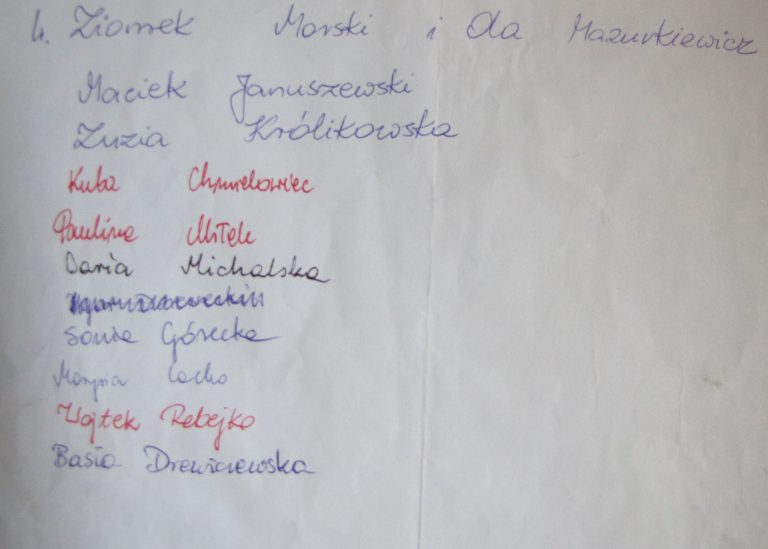 4. Ziomek Morski i Ola Mazurkiewicz
Maciek Januszewski
Zuzia Królikowska
Kuba Chmielowiec
Paulina Miłek
Daria Michalska
Sonia Górecka
Marysia Cacko
Wojtek Rebejko
Basia